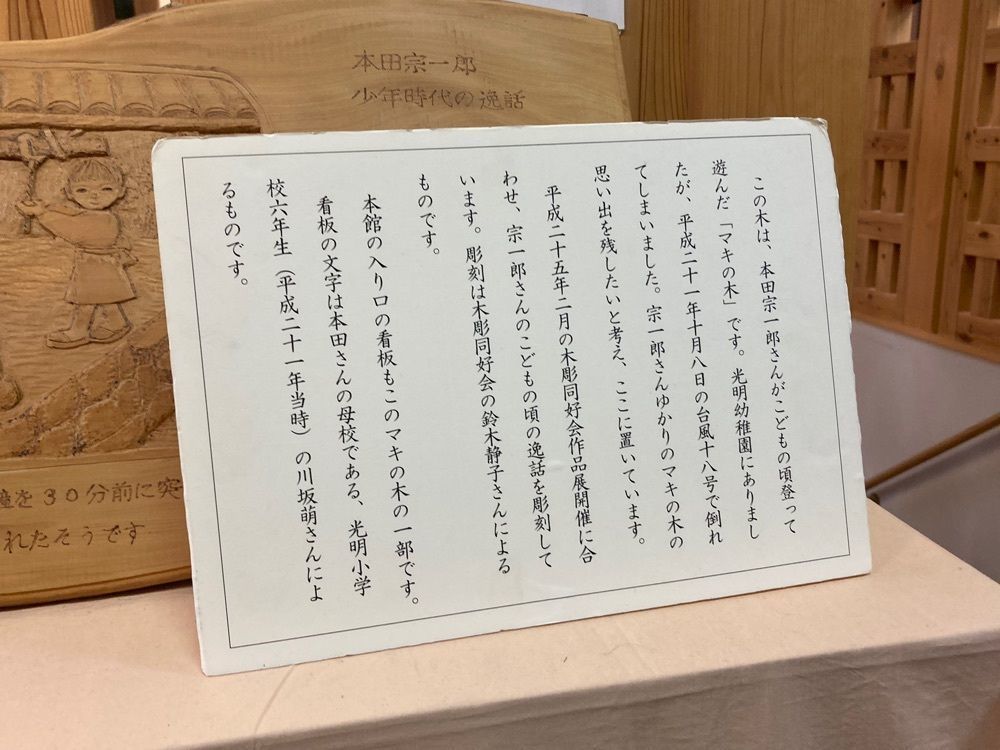 本田宗一郎
少年時代の逸話
この木は、本田宗一郎さんがこどもの頃登って
遊んだ「マキの木」です。光明幼稚園にありまし
たが、平成二十一年十月八日の台風十八号で倒れ
てしまいました。宗一郎さんゆかりのマキの木の
思い出を残したいと考え、ここに置いています。
平成二十五年二月の木彫同好会作品展開催に合
わせ、宗一郎さんのこどもの頃の逸話を彫刻して
います。彫刻は木彫同好会の鈴木静子さんによる
ものです。
本館の入り口の看板もこのマキの木の一部です。
看板の文字は本田さんの母校である、光明小学
校六年生（平成二十一年当時）の川坂萌さんによ
るものです。
を30分前に突
れたそうです